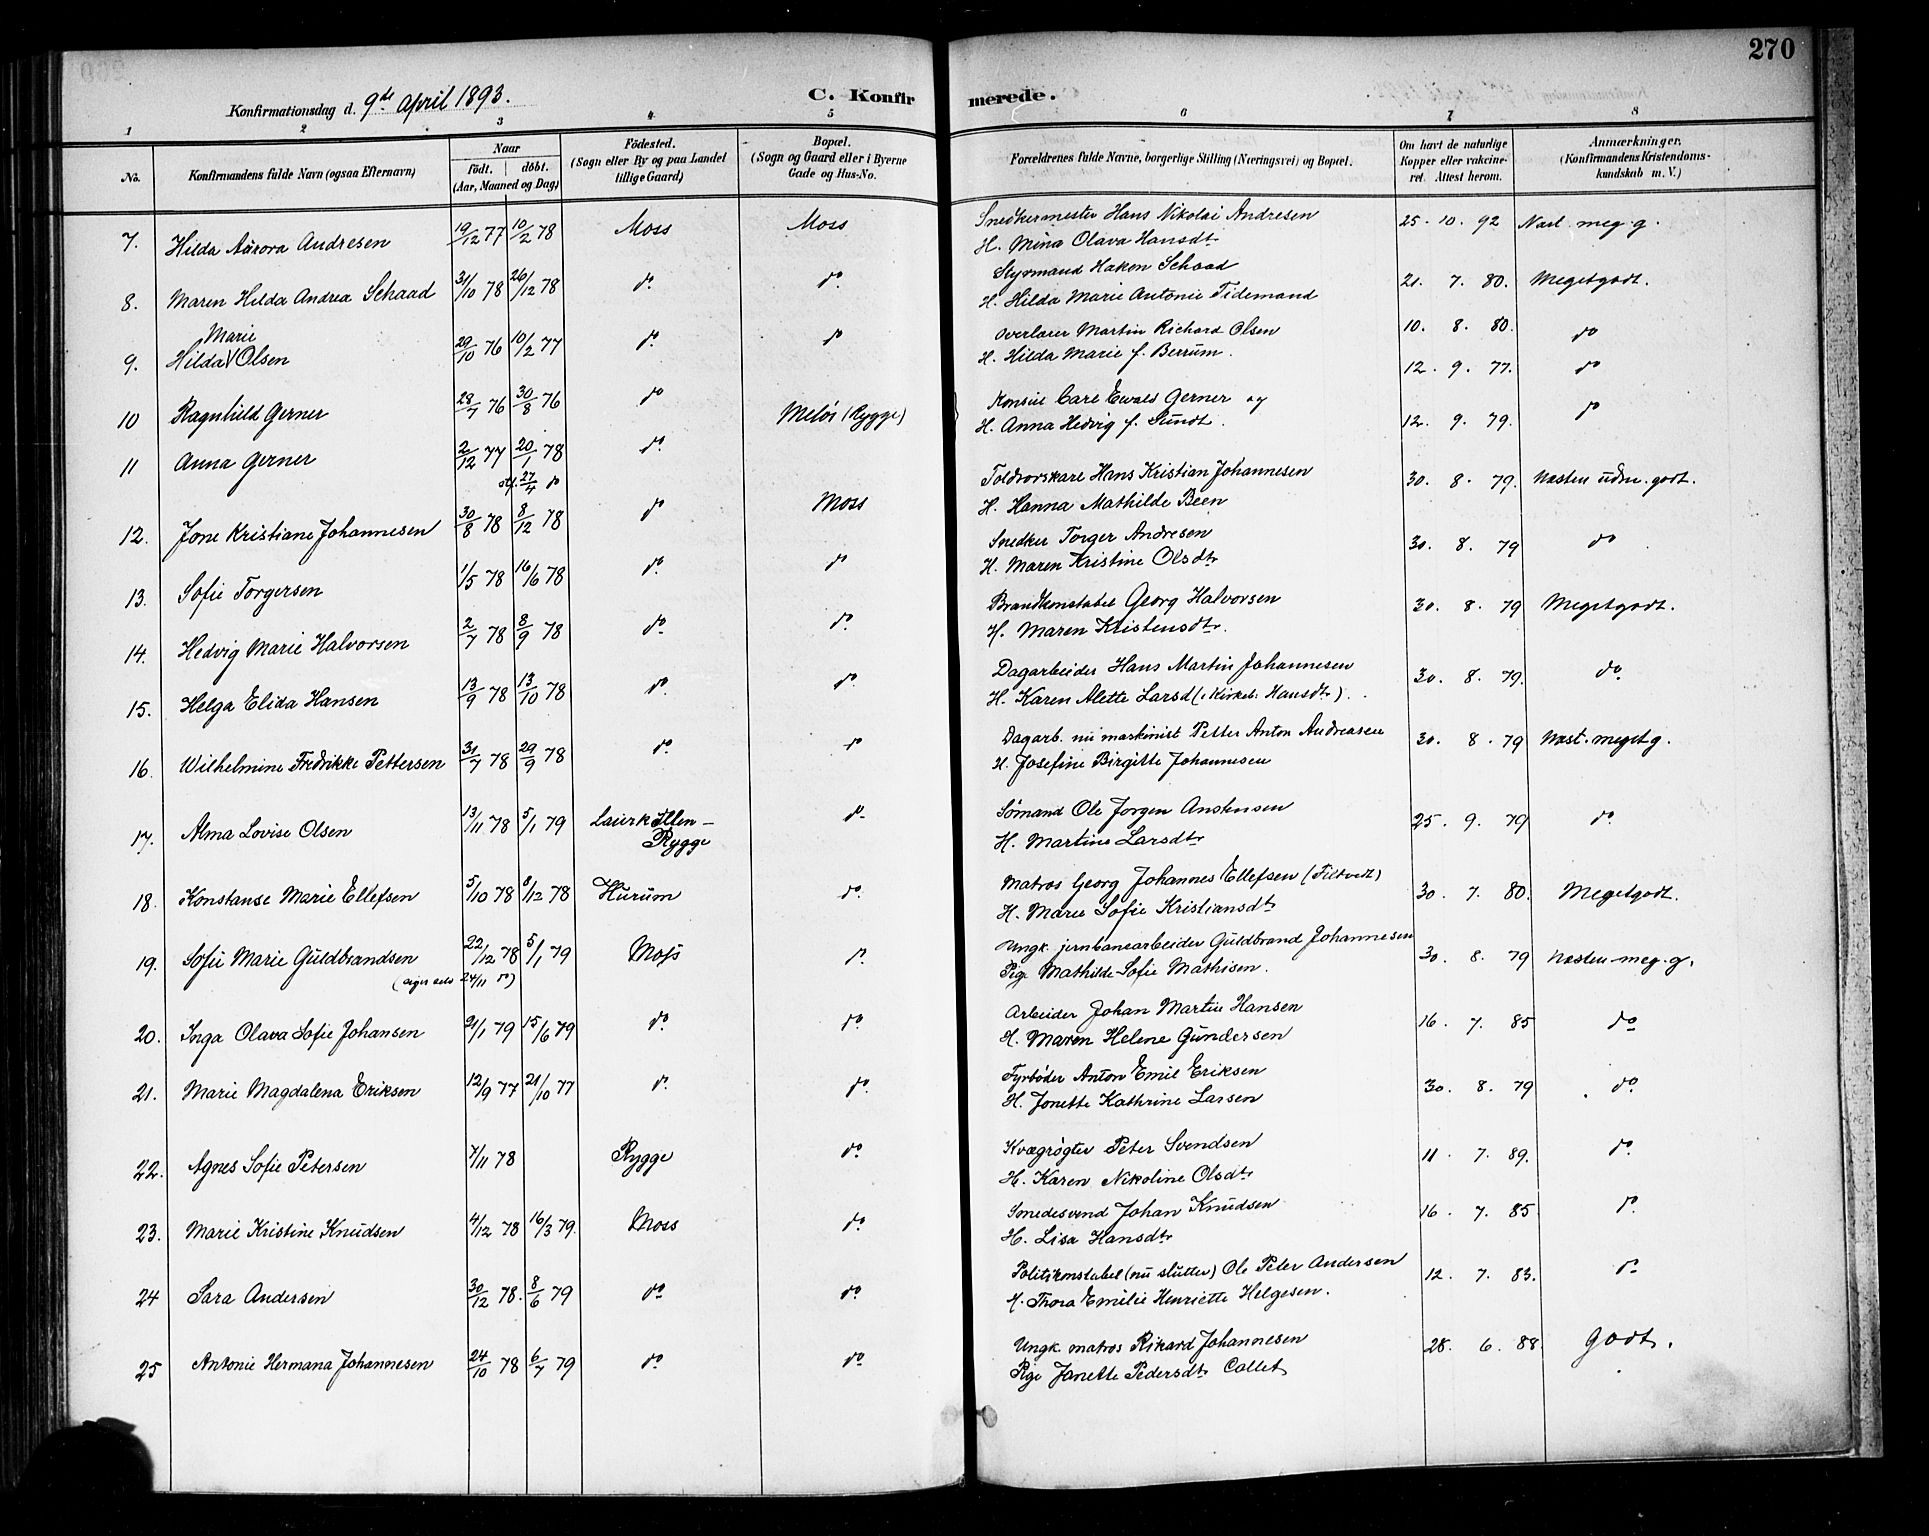 270
Konfirmationsdag d. 9de April 1893. C. Konfirmerede.
1 2 3 4 5 6 7 8
No. Konfirmandens fulde Navn (ogsaa Efternavn) Naar født. døbt. (Aar, Maaned og Dag) Födested. (Sogn eller By og paa Landet tillige Gaard) Bopæl. (Sogn og Gaard eller i Byerne Gade og Hus-No. Forældrenes fulde Navne, borgerlige Stilling (Næringsvei) og Bopæl. Om havt de naturlige Kopper eller vakcineret. Attest herom. Anmærkninger. (Konfirmandens Kristendomskundskab m. V.)
7. Hilda Aurora Andresen 19/12 77 10/2 78 Moss Moss Snedkermester Hans Nikolai Andresen 25. 10. 92 Næst. meg. g.
H. Mina Olava Hansdtr
8. Maren Hilda Andrea Schaad 31/10 78 26/12 78 do. do. Styrmand Haken Schaad 21. 7. 80. Megetgodt.
H. Hilda Marie Antonie Tidemand
9. Hilda Marie Olsen 29/10 76 10/2 77 do. do Overlærer Martin Richard Olsen 10. 8. 80. do
H. Hilda Marie f. Berrum.
10 Ragnhild Gerner 28/7 76 30/8 76 do Meløs (Rygge) Konsul Carl Ewald Gerner og 12. 9. 77. do
H. Anna Hedvig f. Sundt.
11 Anna Gerner 2/12 77 20/1 78 do. 12. 9. 79. do
stf. 27/4 do
12. Jone Kristiane Johannesen 30/8 78 8/12 78 do Moss Toldvorskare Hans Kristian Johannesen 30. 8. 79. Næsten udm. godt.
H. Hanna Mathilde Been
13. Sofie Torgersen 1/5 78 16/6 78 do. do Snedker Torger Andresen 30. 8. 79 do
H. Maren Kristine Olsdtr
14. Hedvig Marie Halvorsen 2/7 78 8/9 78 do. do. Brandkonstabel Georg Halvorsen 30. 8. 79 Megetgodt.
H. Maren Kristensdtr.
15. Helga Elida Hansen 13/9 78 13/10 78 do. do. Dagarbeider Hans Martin Johannesen 30. 8. 79. do.
H. Karen Alette Larsd (i Kirkeb. Hansdtr).
16. Wilhelmine Fredrikke Pettersen 31/7 78 29/9 78 do. do Dagarb. nu maskinist Petter Anton Andreasen 30. 8. 79 Næst. meget g.
H. Josefine Birgitte Johannesen
17. Alma Lovise Olsen 13/11 78 5/1 79 Laurkullen - Rygge do. Sømand Ole Jorgen Anstensen 25. 9. 79 do.
H. Martine Larsdtr
18. Konstanse Marie Ellefsen 5/10 78 8/12 78 Hurum do. Matros Georg Johannes Ellefsen (Filtvedt) 30. 7. 80. Megetgodt.
H. Marie Sofie Kristiansdtr
19. Sofie Marie Guldbrandsen 22/12 78 5/1 79 Moss do. Ungk. jernbanearbeider Guldbrand Johannesen 30. 8. 79 Næsten meg. g.
(siger selv 24/11 do) Pige Mathilde Sofie Mathisen.
20. Inga Olava Sofie Johansen 21/1 79 15/6 79 do. do. Arbeider Johan Martin Hansen 16. 7. 85 do
H. Maren Helene Gundersen
21. Marie Magdalena Eriksen 12/9 77 21/10 77 do. do. Fyrbøder Anton Emil Eriksen 30. 8. 79 do.
H. Jonette Kathrine Larsen
22. Agnes Sofie Petersen 7/11 78 Rygge do. Kvægrøgter Peter Svendsen 11. 7. 89. do.
H. Karen Nikoline Olsdtr
23. Marie Kristine Knudsen 4/12 78 16/3 79. Moss do. Smedesvend Johan Knudsen 16. 7. 85 do.
H. Lisa Hansdtr
24 Sara Andersen 30/12 78. 8/6 79 do do. Politikonstabel (nu slutter) Ole Peter Andersen 12. 7. 83. do
H. Thora Emilie Henriette Helgesen.
25 Antonie Hermana Johannesen 24/10 78 6/7 79 do do. Ungk. matros Rikard Johannesen 28. 6. 88. Godt.
Pige Janette Pedersdtr Callet